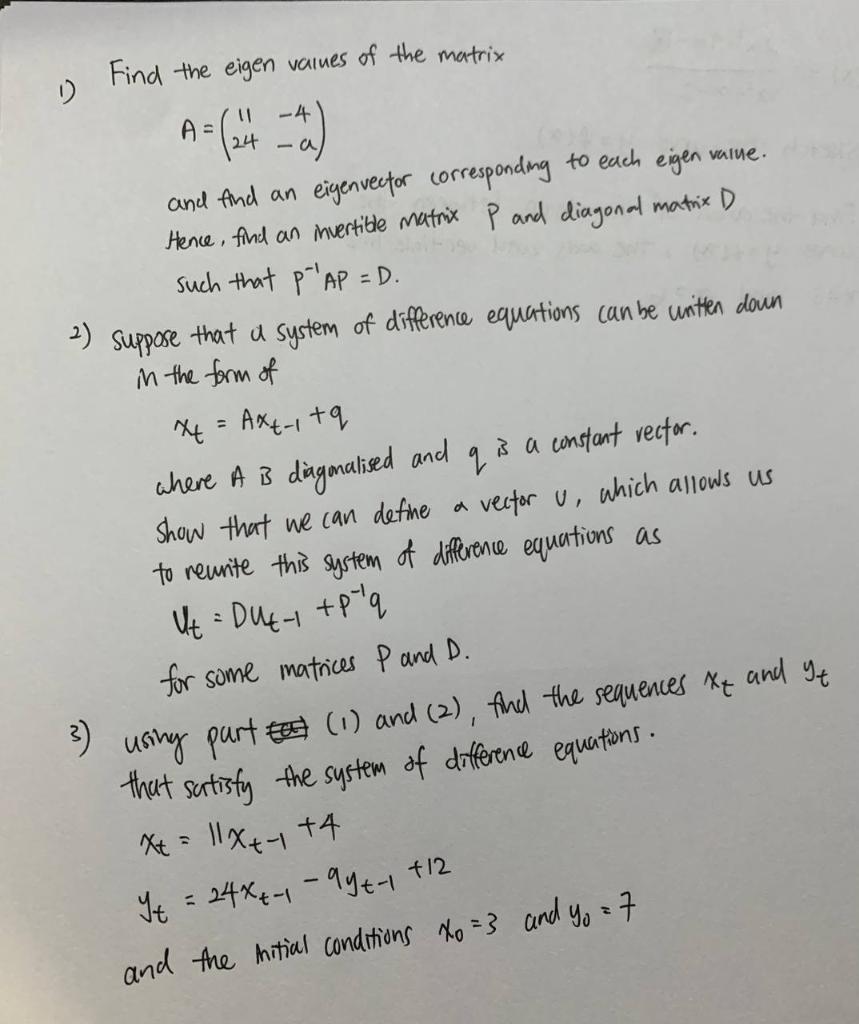 1) Find the eigen values of the matrix
A = (11 -4
24 -9)
and find an eigenvector corresponding to each eigen value.
Hence, find an invertible matrix P and diagonal matrix D
such that P⁻¹AP = D.
2) Suppose that a system of difference equations can be written down
in the form of
xₜ = Axₜ₋₁ + q
where A is diagonalised and q is a constant vector.
Show that we can define a vector u, which allows us
to rewrite this system of difference equations as
Uₜ = DUₜ₋₁ + P⁻¹q
for some matrices P and D.
3) using part (1) and (2), find the sequences xₜ and yₜ
that satisfy the system of difference equations.
xₜ = 11xₜ₋₁ + 4
yₜ = 24xₜ₋₁ - 9yₜ₋₁ + 12
and the initial conditions x₀ = 3 and y₀ = 7